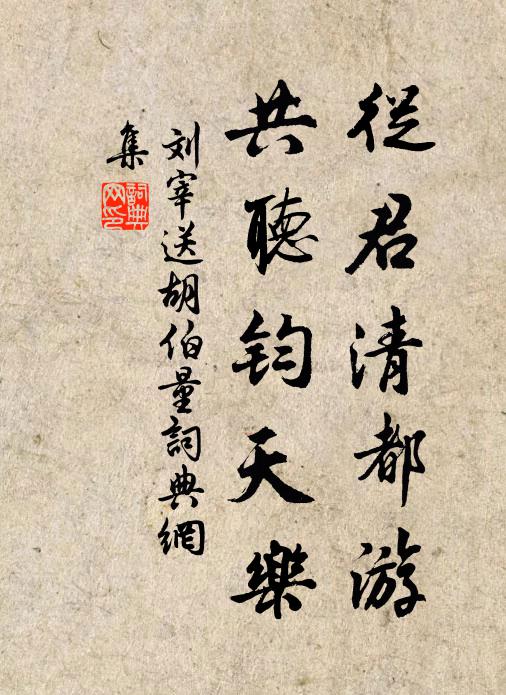 從君清都游
共聽鈞天樂
刘宰送胡伯量詞典網
集
詞典网印